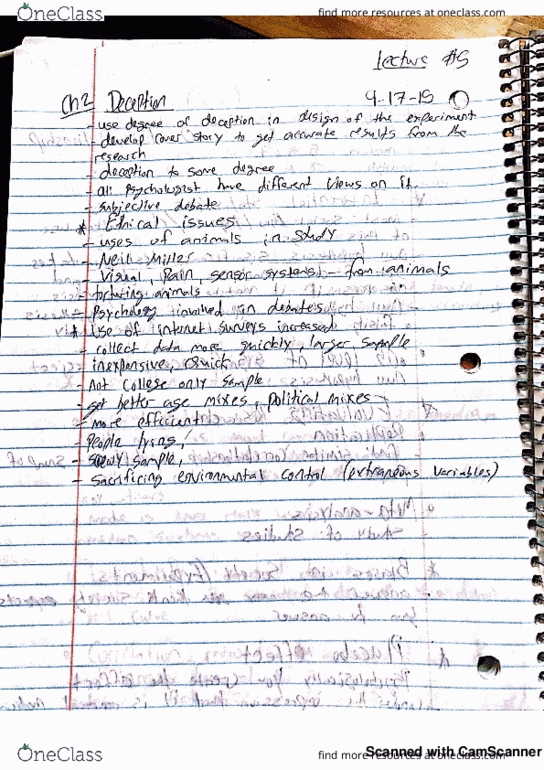 OneClass
find more resources at oneclass.com
Lecture #5
Ch 2 Deception 4-17-15
- use degree of deception in design of the experiment
- develop cover story to get accurate results from the
research
- deception to some degree
- all psychologist have different views on it.
- subjective debate
* Ethical issues
- uses of animals in study
- Neil Miller
- Visual, Pain, sensor systems - from animals
- torturing animals
- Psychology involved in debates
* Use of internet surveys increased
- collect data more quickly, larger sample
- inexpensive, quick
- not college only sample
- get better age mixes, political mixes
- more efficient
- People lying,
- sample,
- sacrificing environmental control (extraneous variables)
OneClass
find more resources at oneclass.com
Scanned with CamScanner